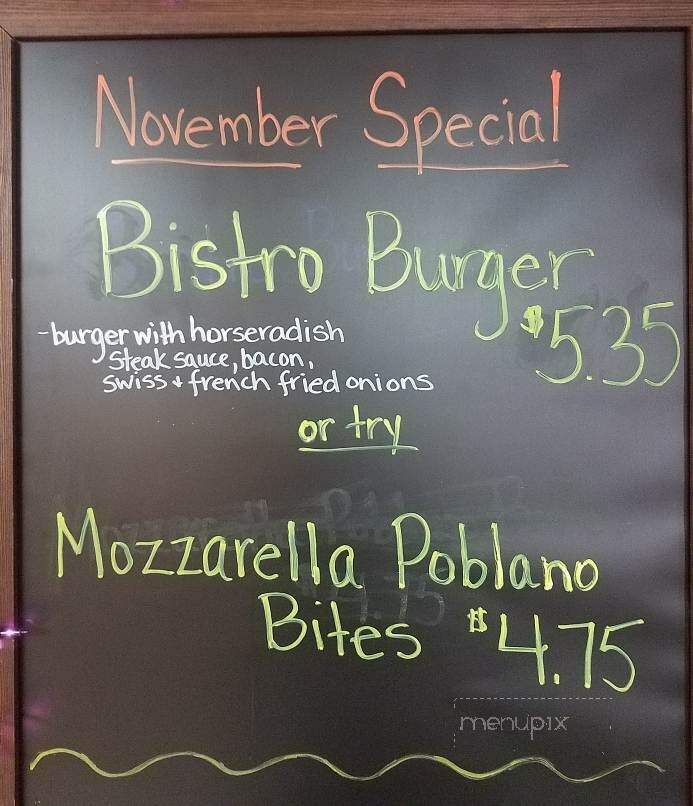 November Special
Bistro Burger
$5.35
-burger with horseradish
steak sauce, bacon,
swiss + french fried onions
or try
Mozzarella Poblano
Bites $4.75
menupix